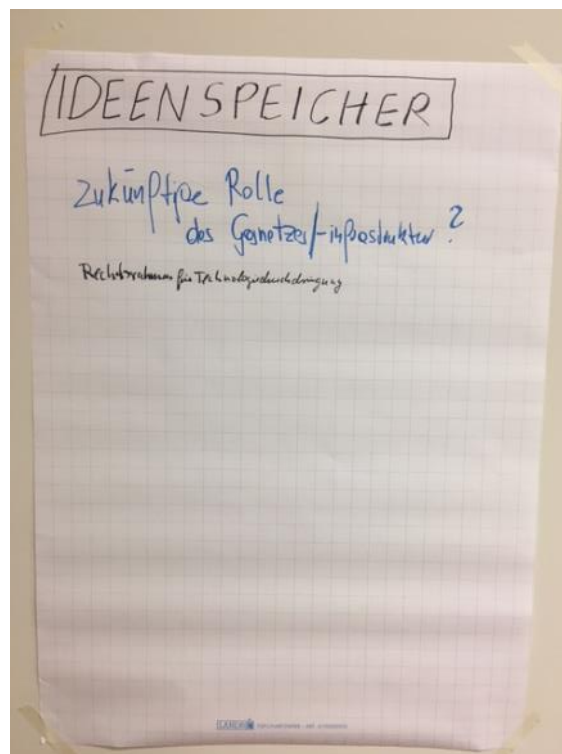 IDEENSPEICHER
Zukünftige Rolle
des Gasnetzes/-infrastruktur?
Rechtsrahmen für Technologiedurchdringung
LANDRÉ